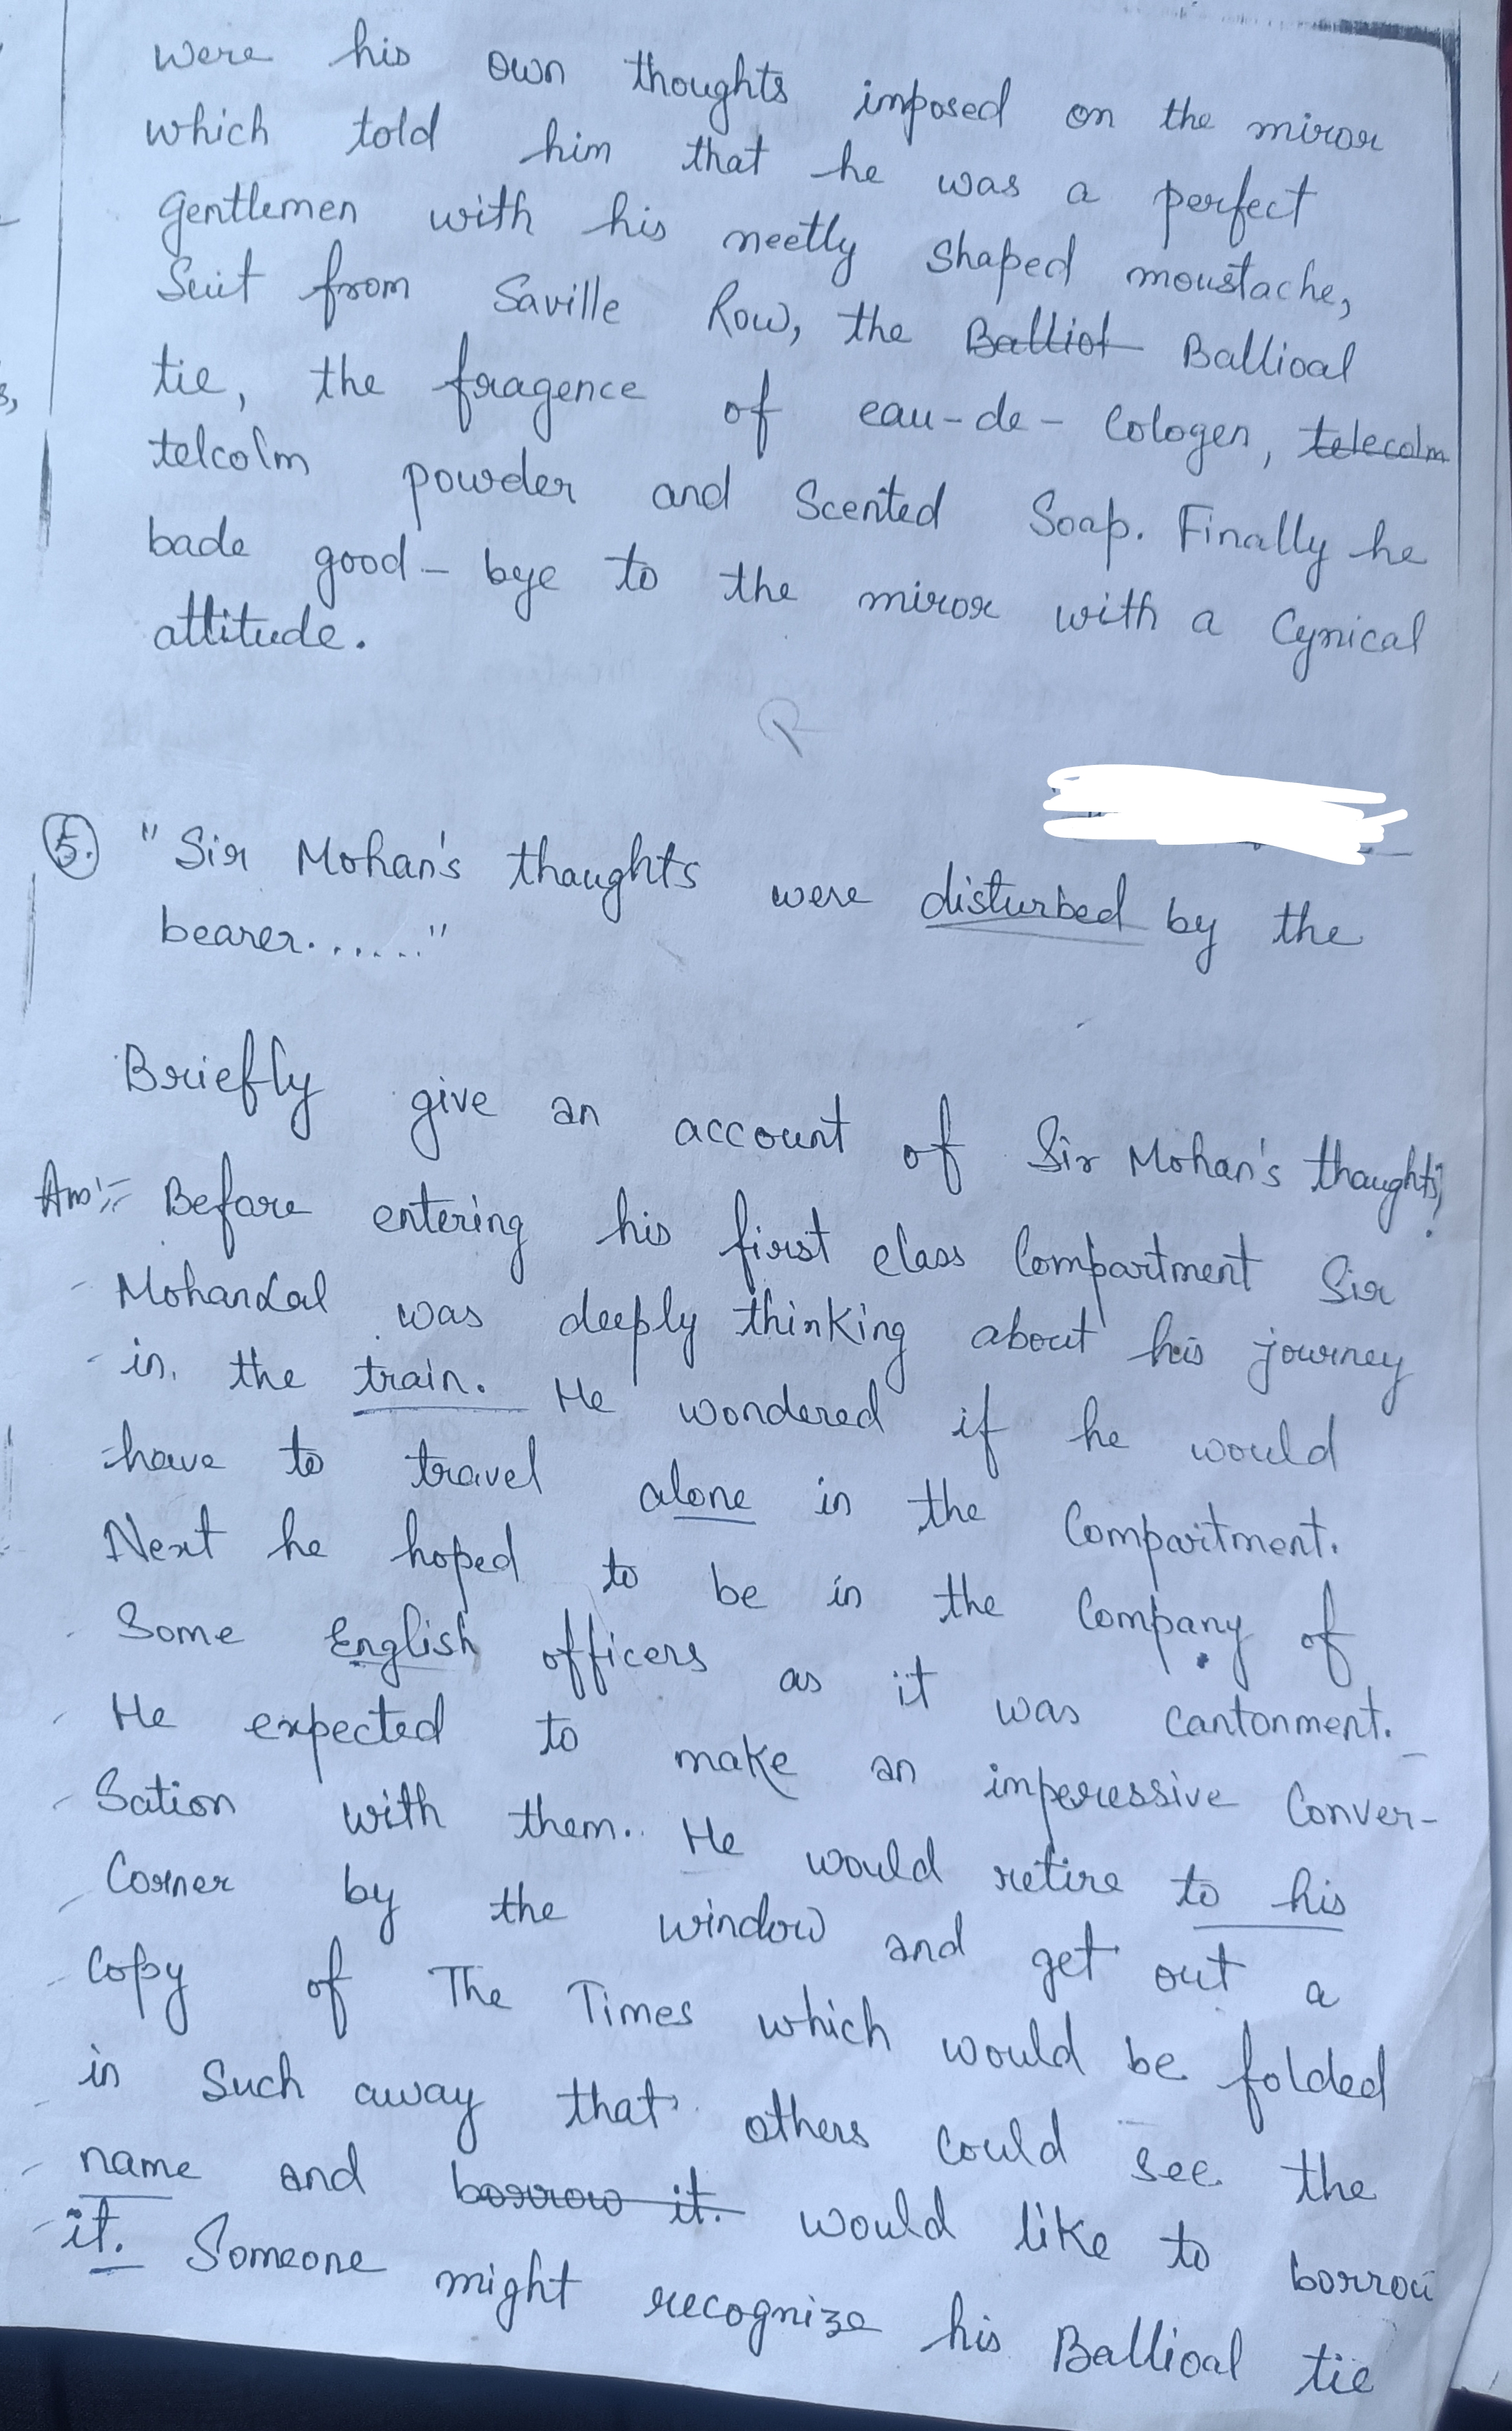 were his own thoughts imposed on the miror
which told him that he was a perfect
gentlemen with his neetly shaped moustache,
Suit from Saville Row, the Balliot Ballioal
tie, the fragence of eau-de-Cologen, telecolm
telcolm powder and Scented Soap. Finally he
bade good-bye to the miror with a Cynical
attitude.
R
5. "Sir Mohan's thaughts were disturbed by the
bearer......."
Briefly give an account of Sir Mohan's thaughts?
Ans:- Before entering his first class Compartment Sir
MohanLal was deeply thinking about his journey
in the train. He wondered if he would
have to travel alone in the Compartment.
Next he hoped to be in the Company of
Some English officers as it was cantonment.
He expected to make an imperessive Conver-
Sation with them. He would retire to his
Corner by the window and get out a
Copy of The Times which would be folded
in Such away that others could see the
name and borrow it. would like to borrow
it. Someone might recognize his Ballioal tie